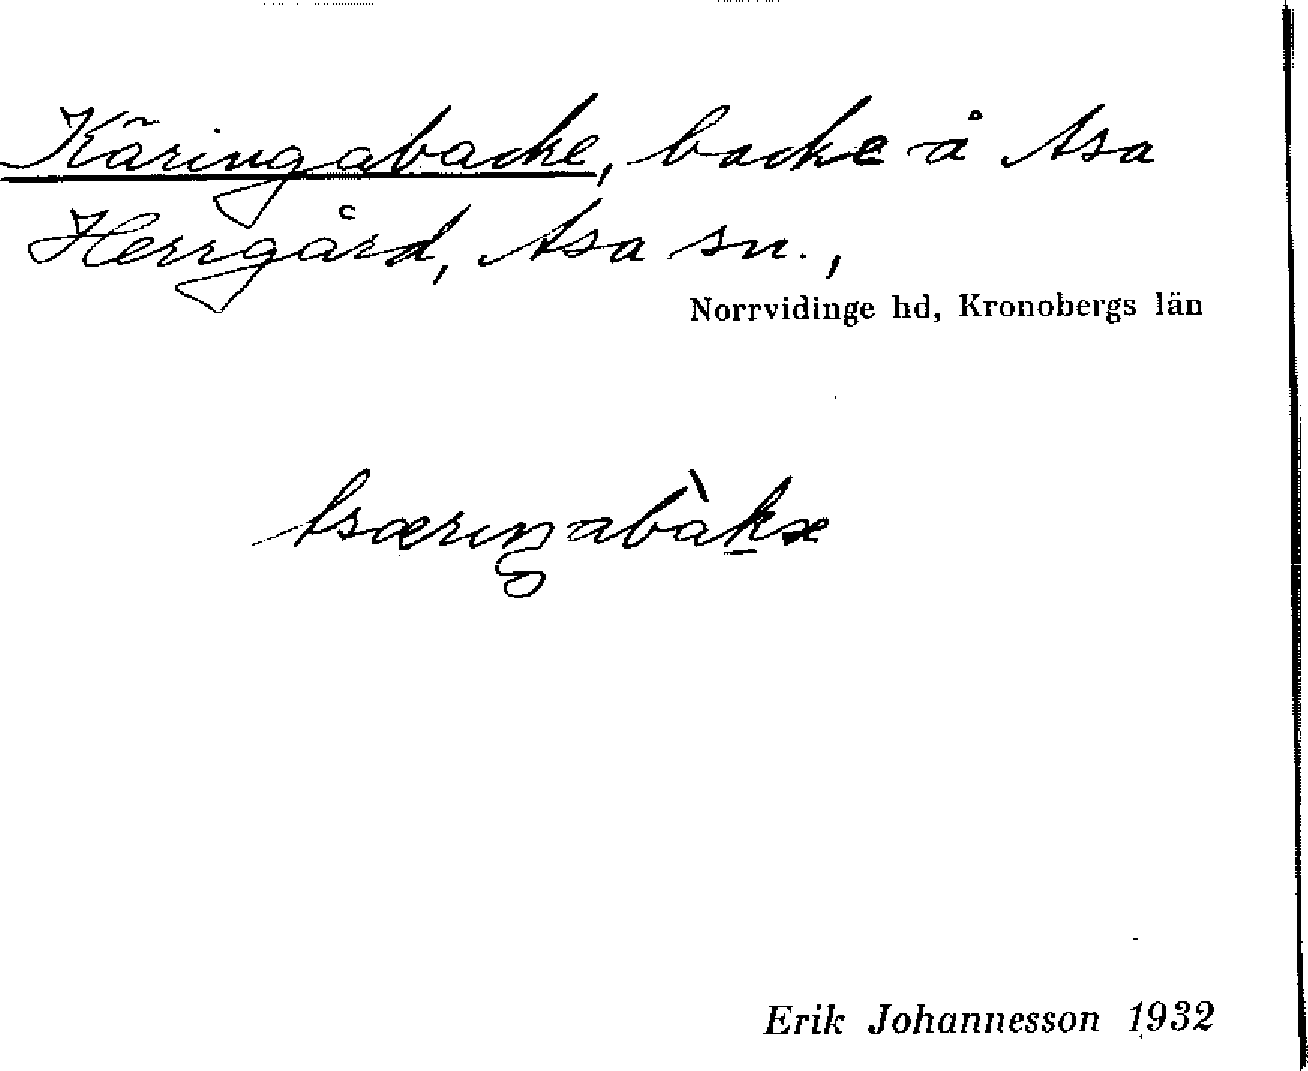 Käringabacke, backe å Asa
Herrgård, Asa sn.,
Norrvidinge hd, Kronobergs län
tsæriŋabàkæ
Erik Johannesson 1932